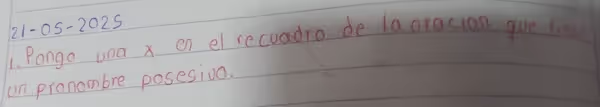 21-05-2025
1. Pongo una x en el recuadro de la oracion que
un pronombre posesivo.